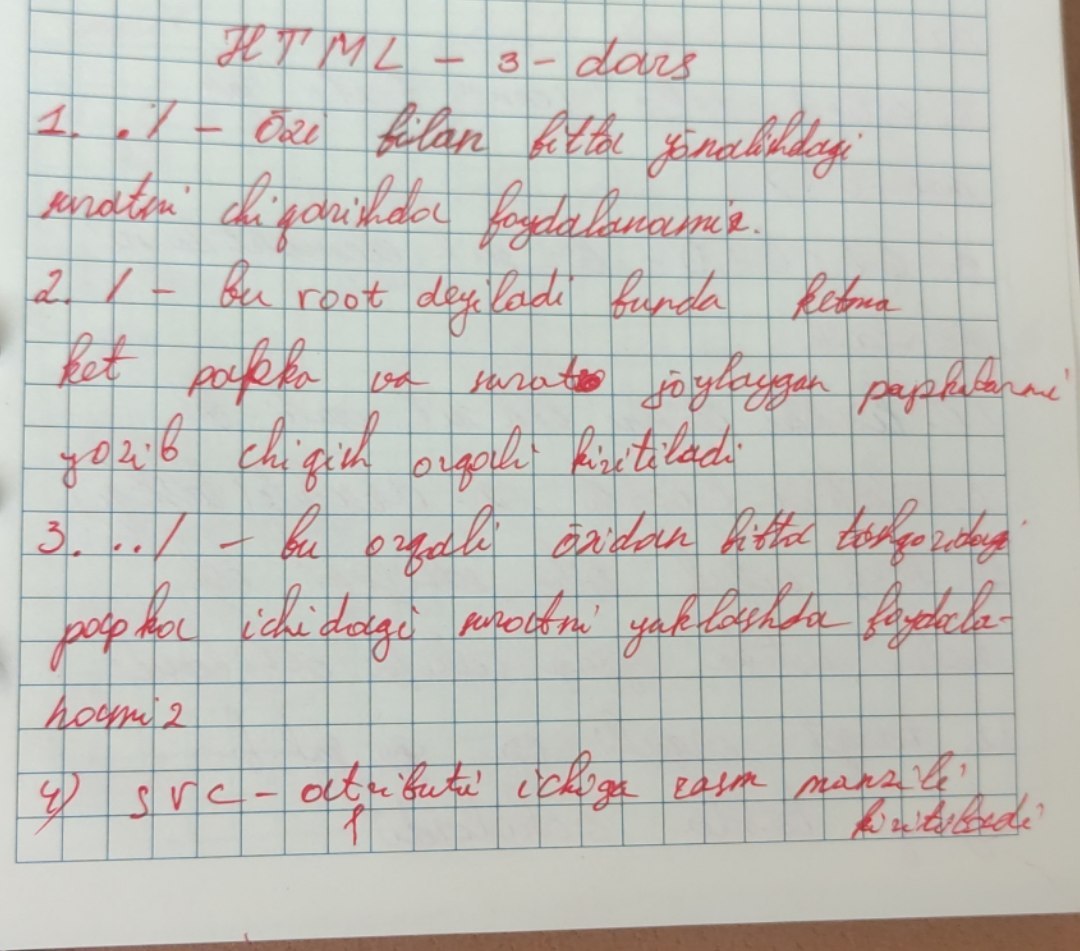 HTML - 3 - dars
1. ./ - ōzi bilan bitta yōnalishdagi
suratni chiqarishda foydalanamiz.
2. / - bu root deyiladi bunda ketma
ket papka va surat jōylaygan papkalarni
yozib chiqish orqali kiritiladi
3. ../ - bu orqali ōzidan bitta tashqaridagi
papka ichidagi suratni yuklashda foydala-
namiz
4) src - atributi ichiga rasm manzili
kiritiladi